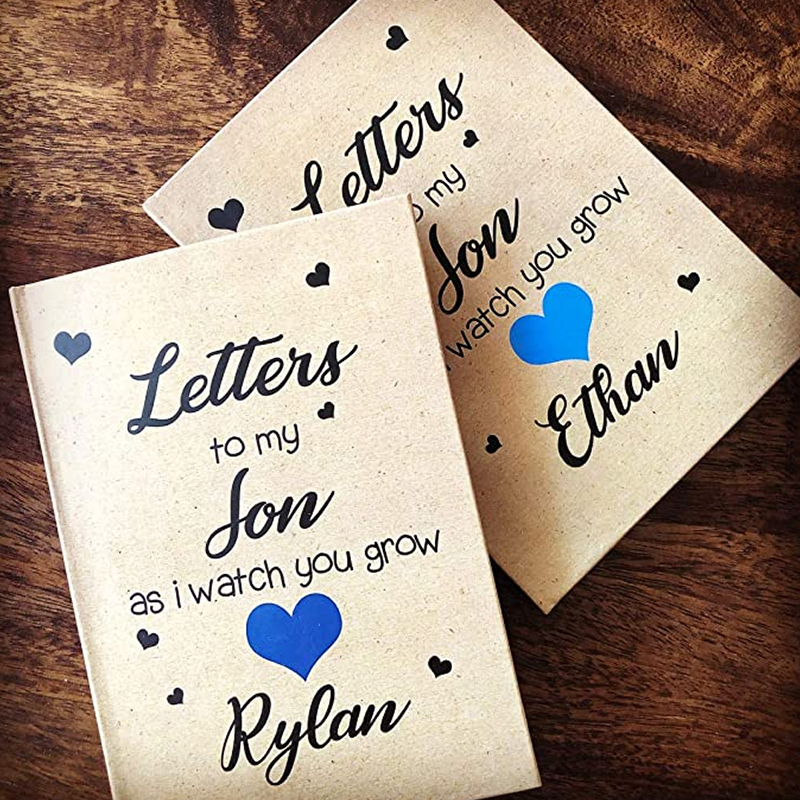 Letters
to my
Son
as i watch you grow
Rylan
Letters
my
Son
watch you grow
Ethan